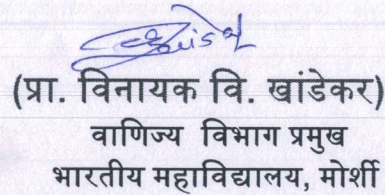 (प्रा. विनायक वि. खांडेकर)
वाणिज्य विभाग प्रमुख
भारतीय महाविद्यालय, मोर्शी